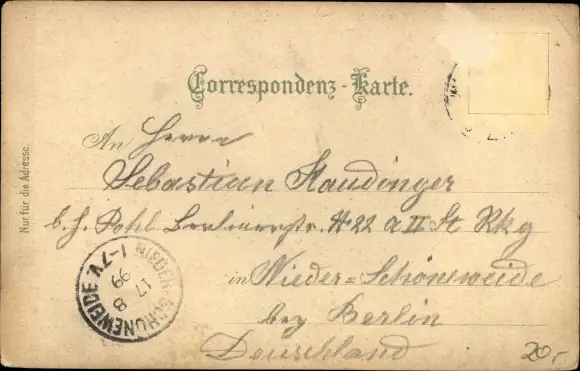 Correspondenz-Karte.
An Herrn
Sebastian Staudinger
b. H. Pohl Berlinerstr. No 22 a II St Rkg
in Nieder=Schöneweide
bey Berlin
Deuschland
Nur für die Adresse.
NIEDER-SCHÖNEWEIDE
17 8 99
1-7 V.
20,-